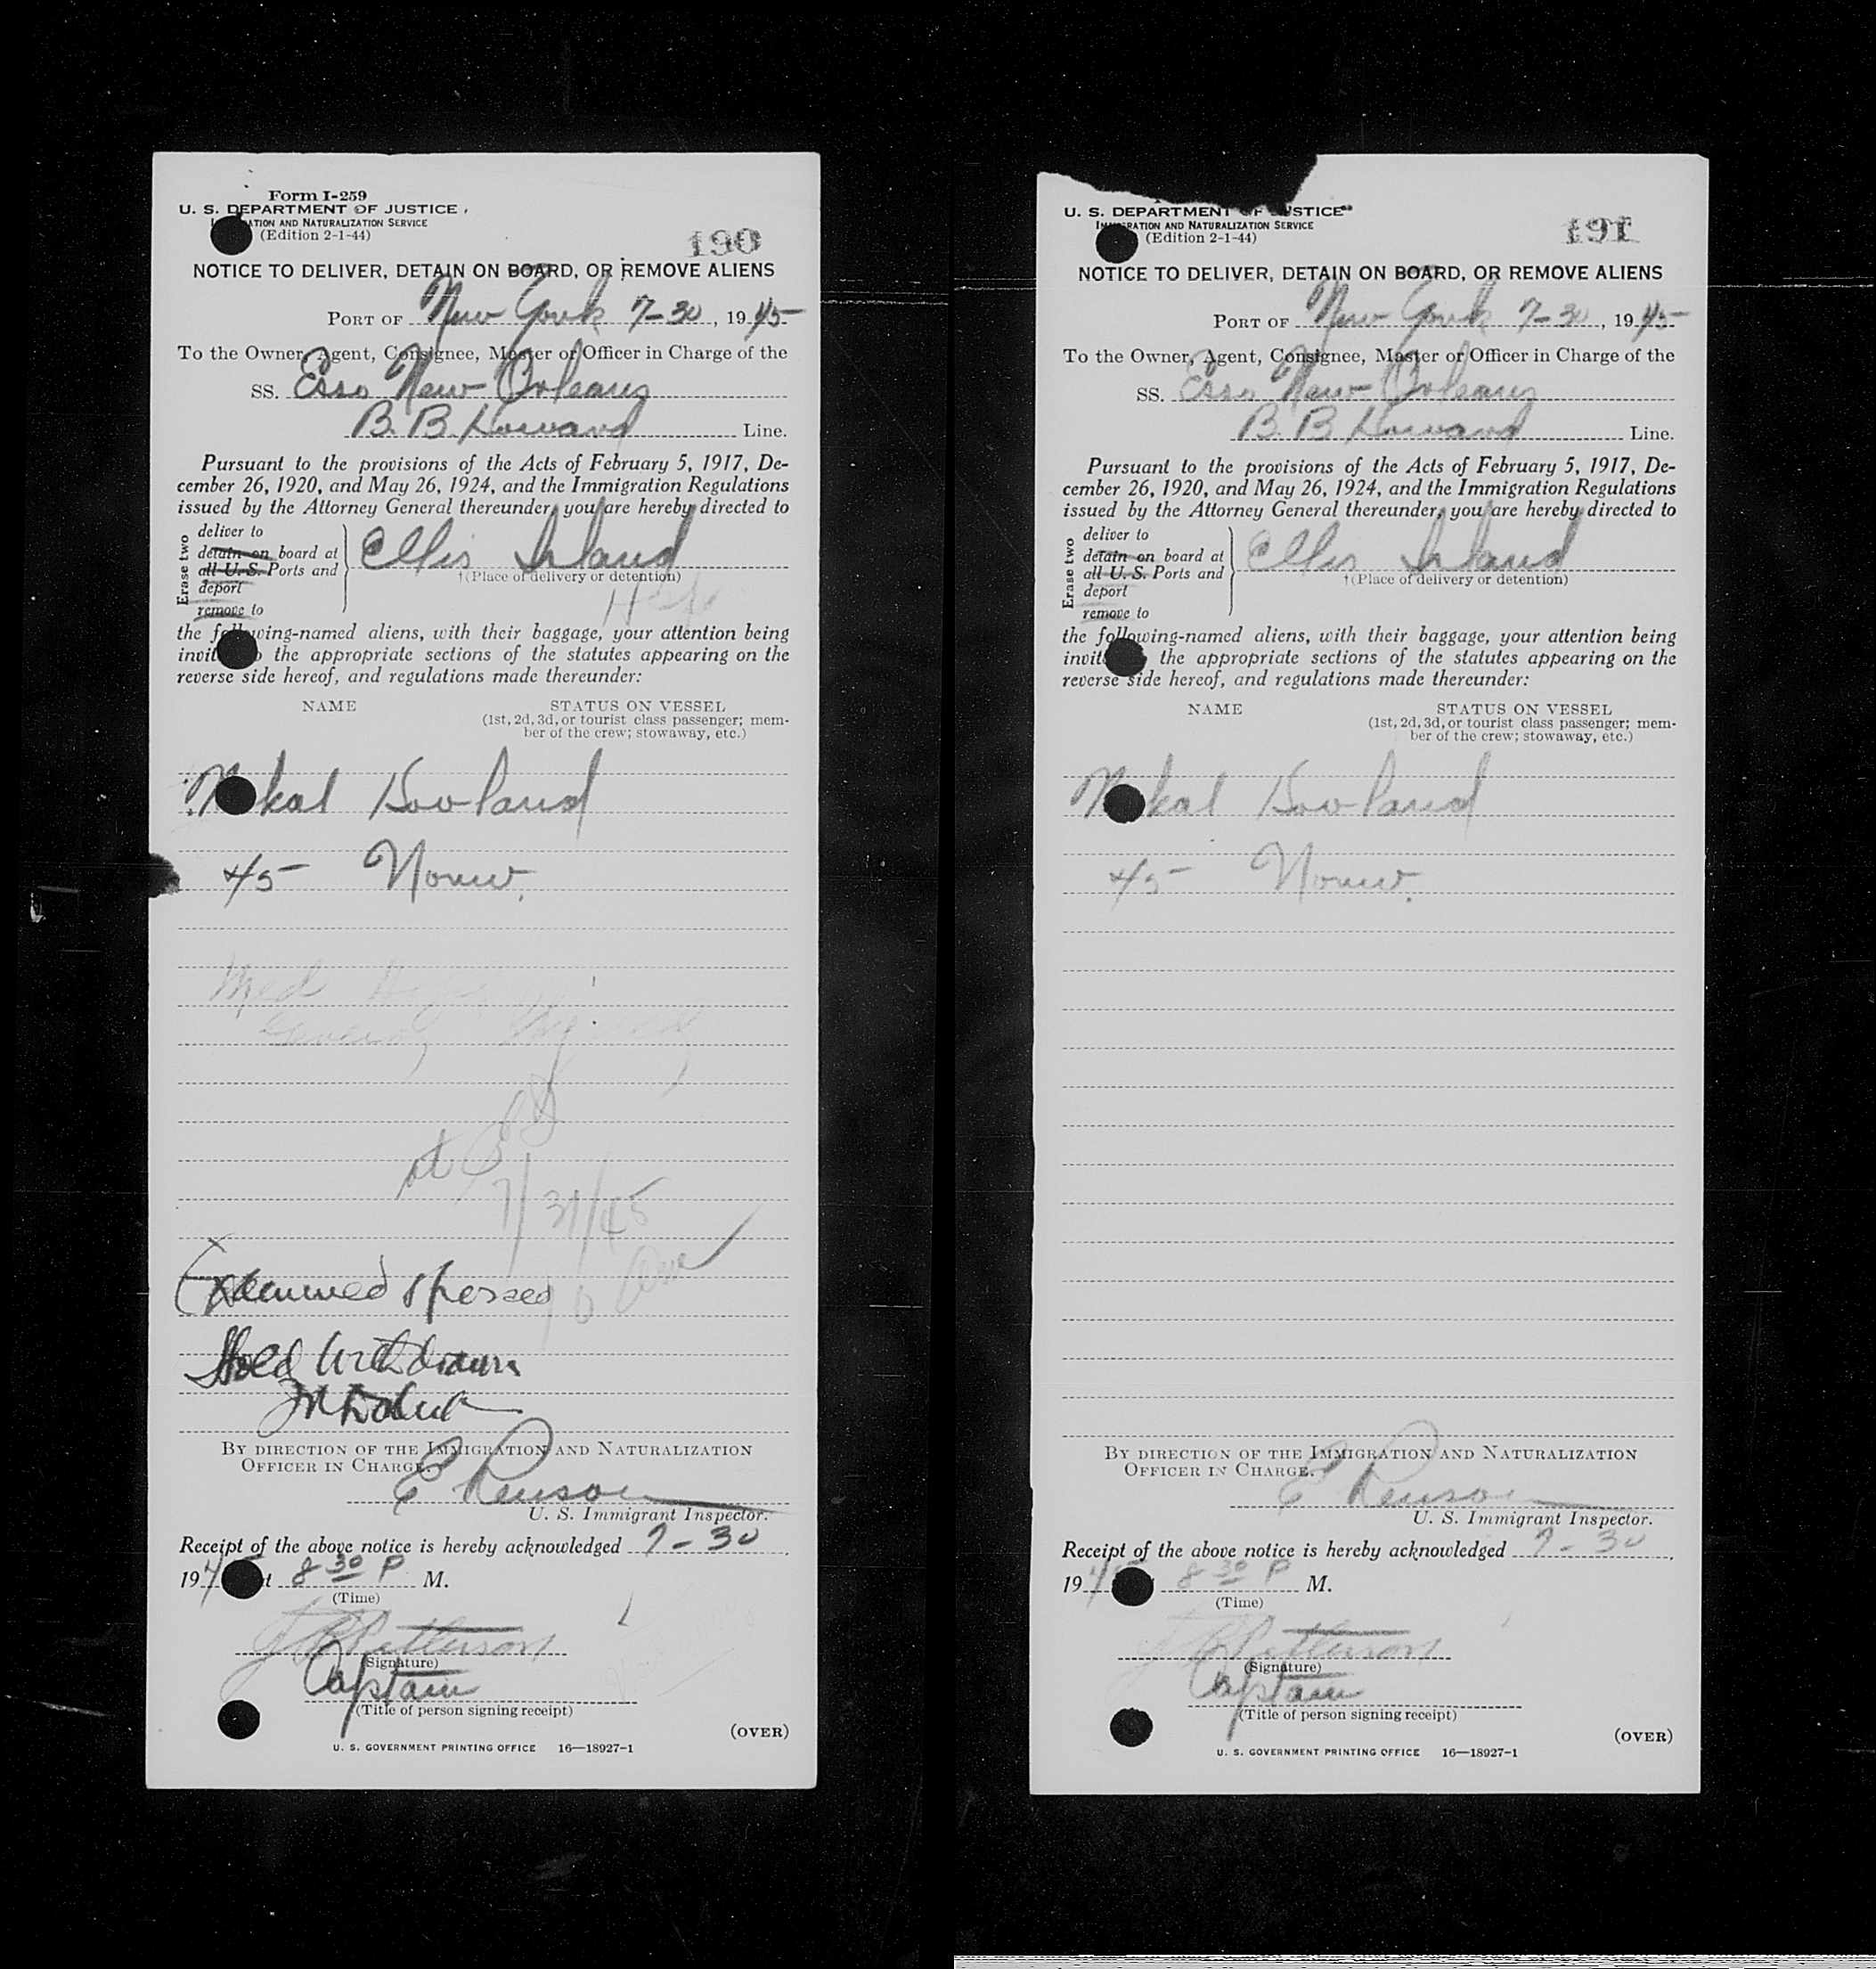 Form I-259
U. S. DEPARTMENT OF JUSTICE
ATION AND NATURALIZATION SERVICE
(Edition 2-1-44)
190
NOTICE TO DELIVER, DETAIN ON BOARD, OR REMOVE ALIENS
PORT OF New York 7-30, 1945
To the Owner, Agent, Consignee, Master or Officer in Charge of the
SS. Esso New Orleans
B. B. Howard Line.
Pursuant to the provisions of the Acts of February 5, 1917, De-
cember 26, 1920, and May 26, 1924, and the Immigration Regulations
issued by the Attorney General thereunder, you are hereby directed to
Erase two
deliver to
detain on board at
all U. S. Ports and
deport
remove to
Ellis Island
†(Place of delivery or detention)
the following-named aliens, with their baggage, your attention being
invit the appropriate sections of the statutes appearing on the
reverse side hereof, and regulations made thereunder:
NAME STATUS ON VESSEL
(1st, 2d, 3d, or tourist class passenger; mem-
ber of the crew; stowaway, etc.)
kal
45 Norw.
Med
at
7/31/45
Examined & passed
Hold Withdrawn
BY DIRECTION OF THE IMMIGRATION AND NATURALIZATION
OFFICER IN CHARGE.
E
U. S. Immigrant Inspector.
Receipt of the above notice is hereby acknowledged 7-30,
194 t 8 30 P M.
(Time)
Patterson
(Signature)
Captain
(Title of person signing receipt)
(OVER)
U. S. GOVERNMENT PRINTING OFFICE 16—18927-1
U. S. DEPARTMENT OF JUSTICE
RATION AND NATURALIZATION SERVICE
(Edition 2-1-44)
191
NOTICE TO DELIVER, DETAIN ON BOARD, OR REMOVE ALIENS
PORT OF New York 7-30, 1945
To the Owner, Agent, Consignee, Master or Officer in Charge of the
SS. Esso New Orleans
B. B. Howard Line.
Pursuant to the provisions of the Acts of February 5, 1917, De-
cember 26, 1920, and May 26, 1924, and the Immigration Regulations
issued by the Attorney General thereunder, you are hereby directed to
Erase two
deliver to
detain on board at
all U. S. Ports and
deport
remove to
Ellis Island
†(Place of delivery or detention)
the following-named aliens, with their baggage, your attention being
invit the appropriate sections of the statutes appearing on the
reverse side hereof, and regulations made thereunder:
NAME STATUS ON VESSEL
(1st, 2d, 3d, or tourist class passenger; mem-
ber of the crew; stowaway, etc.)
kal
45 Norw.
BY DIRECTION OF THE IMMIGRATION AND NATURALIZATION
OFFICER IN CHARGE.
E
U. S. Immigrant Inspector.
Receipt of the above notice is hereby acknowledged 7-30,
194 8 30 P M.
(Time)
Patterson
(Signature)
Captain
(Title of person signing receipt)
(OVER)
U. S. GOVERNMENT PRINTING OFFICE 16—18927-1